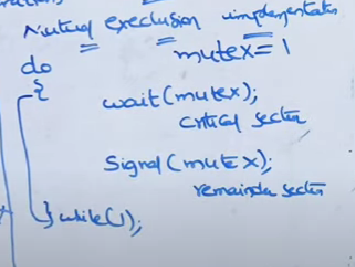 Mutual execlusion implementation
mutex=1
do
{
wait(mutex);
critical section
Signal(mutex);
remainder section
}while(1);